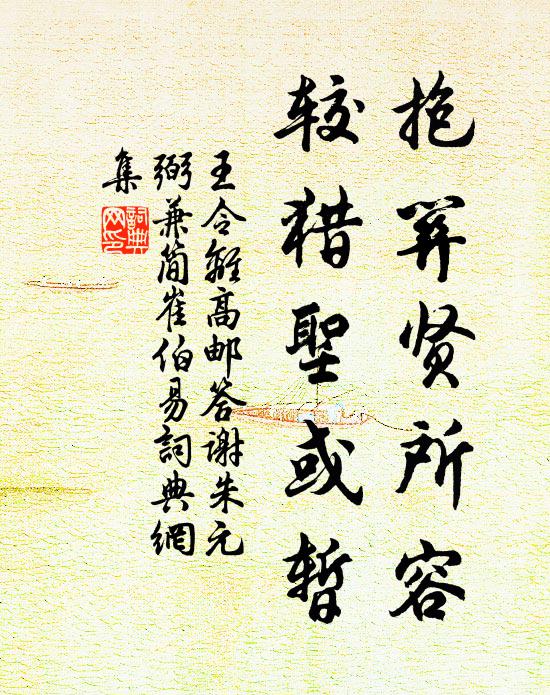 抱关贤所容
较猎聖或暂
王令離高邮答谢朱元
弼兼简崔伯易詞典網
集
詞典
网印